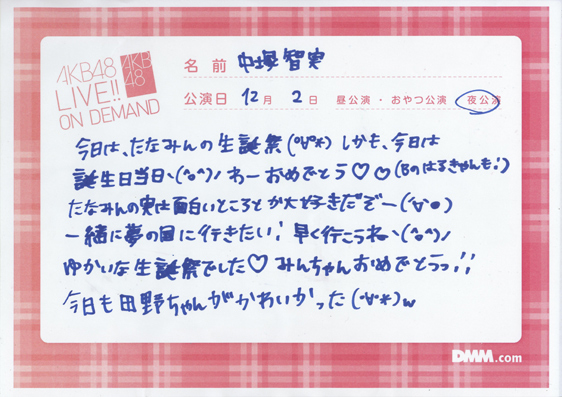 AKB48
LIVE!!
ON DEMAND
AKB
48
名前 中塚智実
公演日 12月 2日 昼公演・おやつ公演 夜公演
今日は、たなみんの生誕祭(°∀°*)しかも、今日は
誕生日当日、(^o^)ノわーおめでとう♡♡(Bのはるきゃんも!)
たなみんの実は面白いところとか大好きだぞー(・∀・●)
一緒に夢の国に行きたい!早く行こうね、(^o^)ノ
ゆかいな生誕祭でした♡みんちゃんおめでとうっ!!
今日も田野ちゃんがかわいかった(°∀°*)w
DMM.com